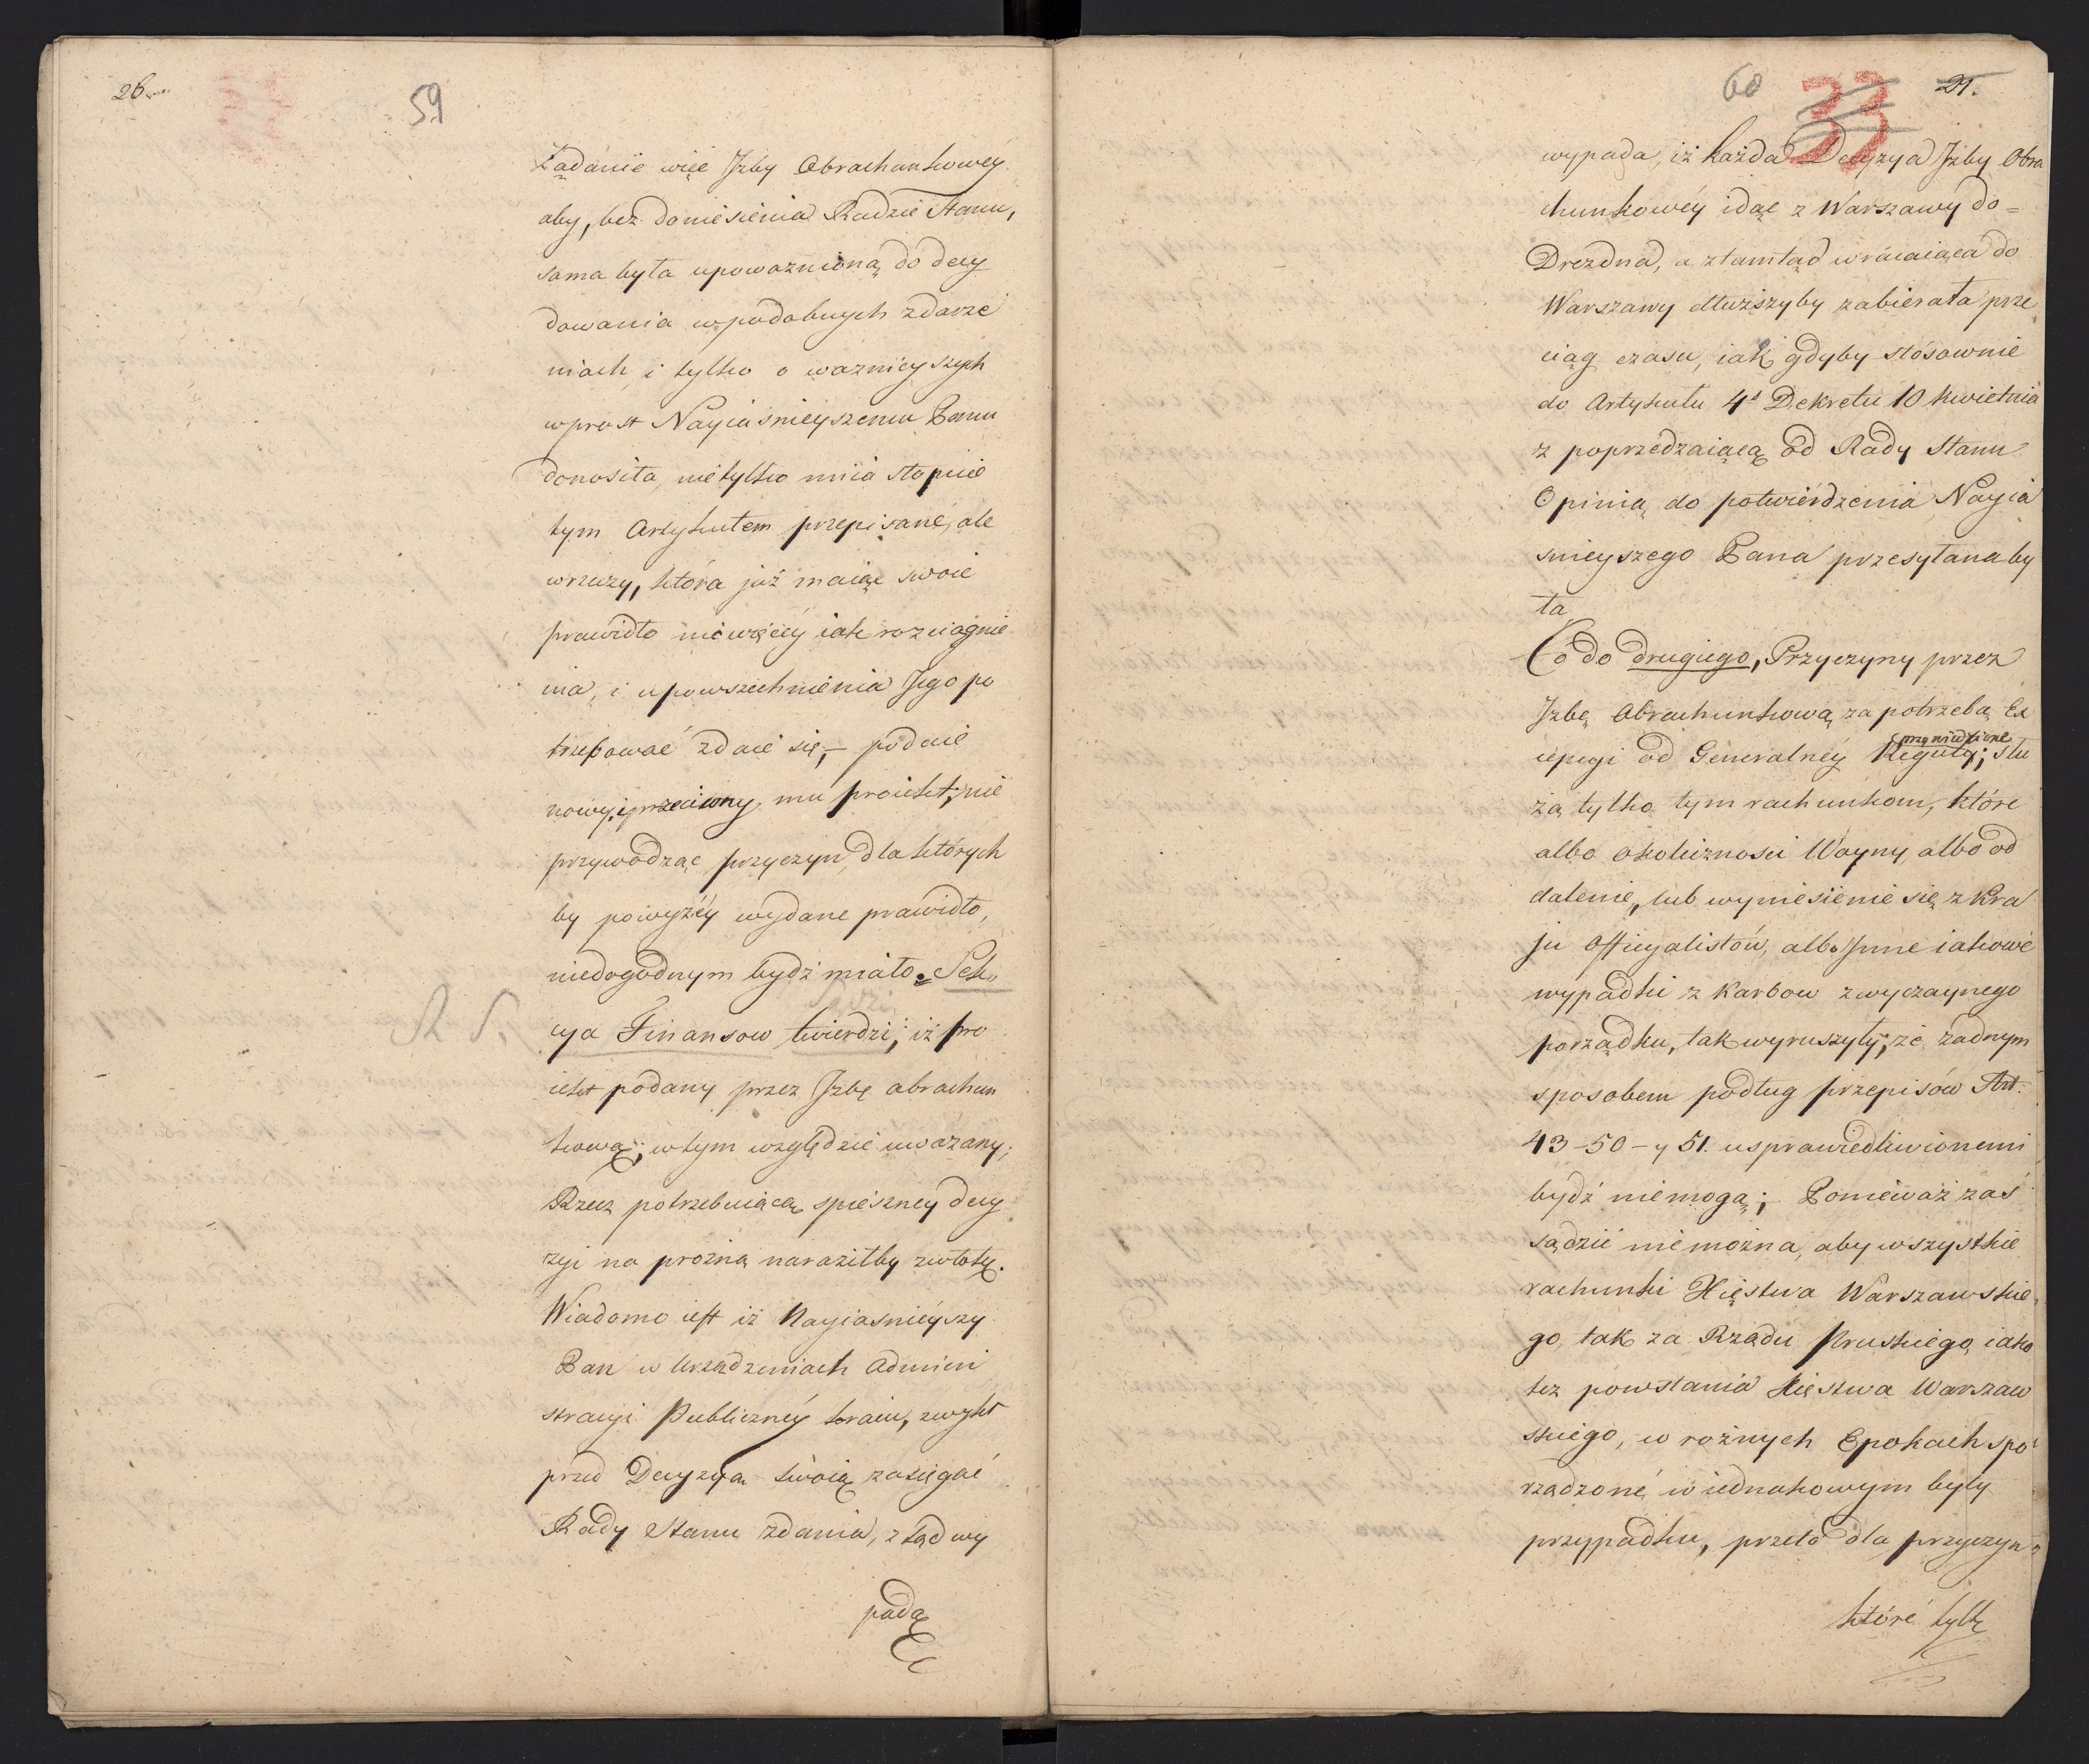 26
59
Żądanie więc Izby Obrachunkowéy
aby, bez doniesienia Radzie Stanu,
sama była upoważnioną do decy
dowania w podobnych zdarze
niach i tylko o ważnieyszych
wprost Nayiaśnieyszemu Panu
donosiła, nietylko miia stopnie
tym Artykułem przepisane, ale
w rzeczy, która już maiąc swoie
prawidło nic więcéy iak rozciągnie
nia, i upowszechnienia Jego po
trzebować zdaie się, – podaie
nowy, i przeciwny mu proiekt; nie
przywodząc przyczyn, dla których
by powyżéy wydane prawidło,
niedogodnym bydź miało. Sek„
cya Finansow twierdzi; iż pro
iekt podany przez Izbę obrachun
kową; w tym względzie uważany;
Rzecz potrzebuiącą spieszney decy
zyi na prożną naraziłby zwłokę.
Wiadomo iest iż Nayiasnieyszy
Pan w Urządzeniach Admini
stracyi Publicznéy kraiu, zwykł
przed Decyzyą swoią zasięgać
Rady Stanu zdania, z tąd wy
pada
60
33
27.
wypada, iż każda Decyzya Izby Obra
chunkowéy idąc z Warszawy do=
Drezdna, a ztamtąd wracaiąca do
Warszawy dłuższyby zabierała prze
ciąg czasu, iak gdyby stósownie
do Artykułu 4º Dekretu 10 kwietnia
z poprzedzaiącą od Rady Stanu
Opinią do potwierdzenia Nayia
snieyszego Pana przesyłana by
ła
Co do drugiego, Przyczyny przez
Izbę Obrachunkową za potrzebą Ex
cepcyi od Generalnéy Reguły; słu
przywiedzione
żą tylko tym rachunkom, które
albo okoliczności Woyny, albo od
dalenie, lub wyniesienie się z Kra
ju Officyalistów, albo Jnne iakowe
wypadki z karbow zwyczaynego
porządku, tak wyruszyły; że żadnym
sposobem podług przepisów Art.
43 – 50 – y 51. usprawiedliwionemi
bydź niemogą; Ponieważ zaś
sądzić nie można, aby wszystkie
rachunki Xięstwa Warszawskie„
go, tak za Rządu Pruskiego, iako
też powstania Xięstwa Warszaw
skiego, w rożnych Epokach spo
rządzoné, w iednakowym były
przypadku, przeto dla przyczyn
któré tylk